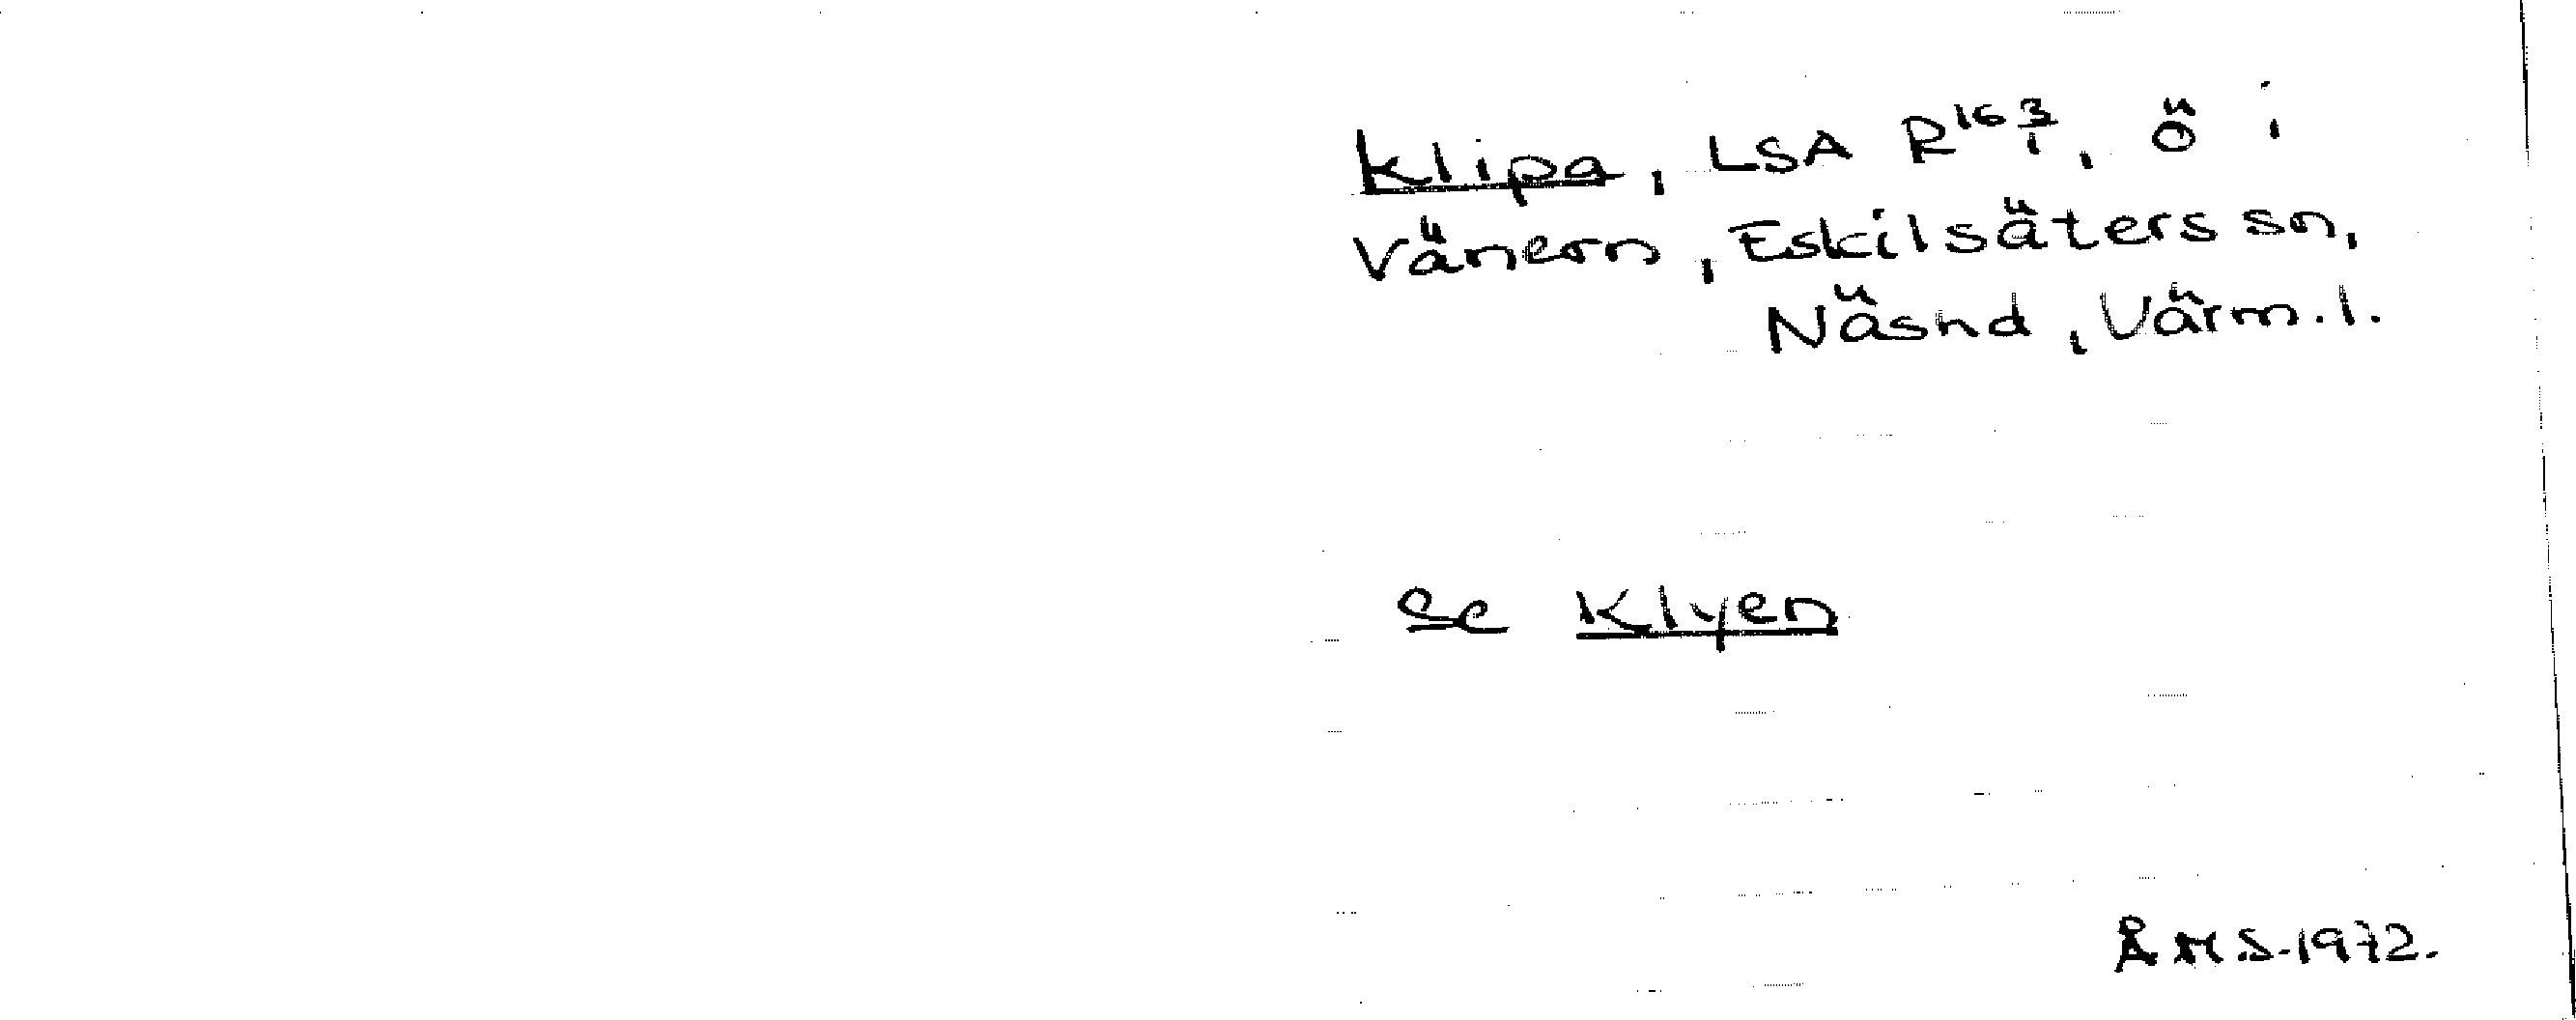 Klipa, LSA R16 3/1, ö i
Vänern, Eskilsäters sn,
Näshd, Värm.l.
se Klyen
ÅMS-1972.